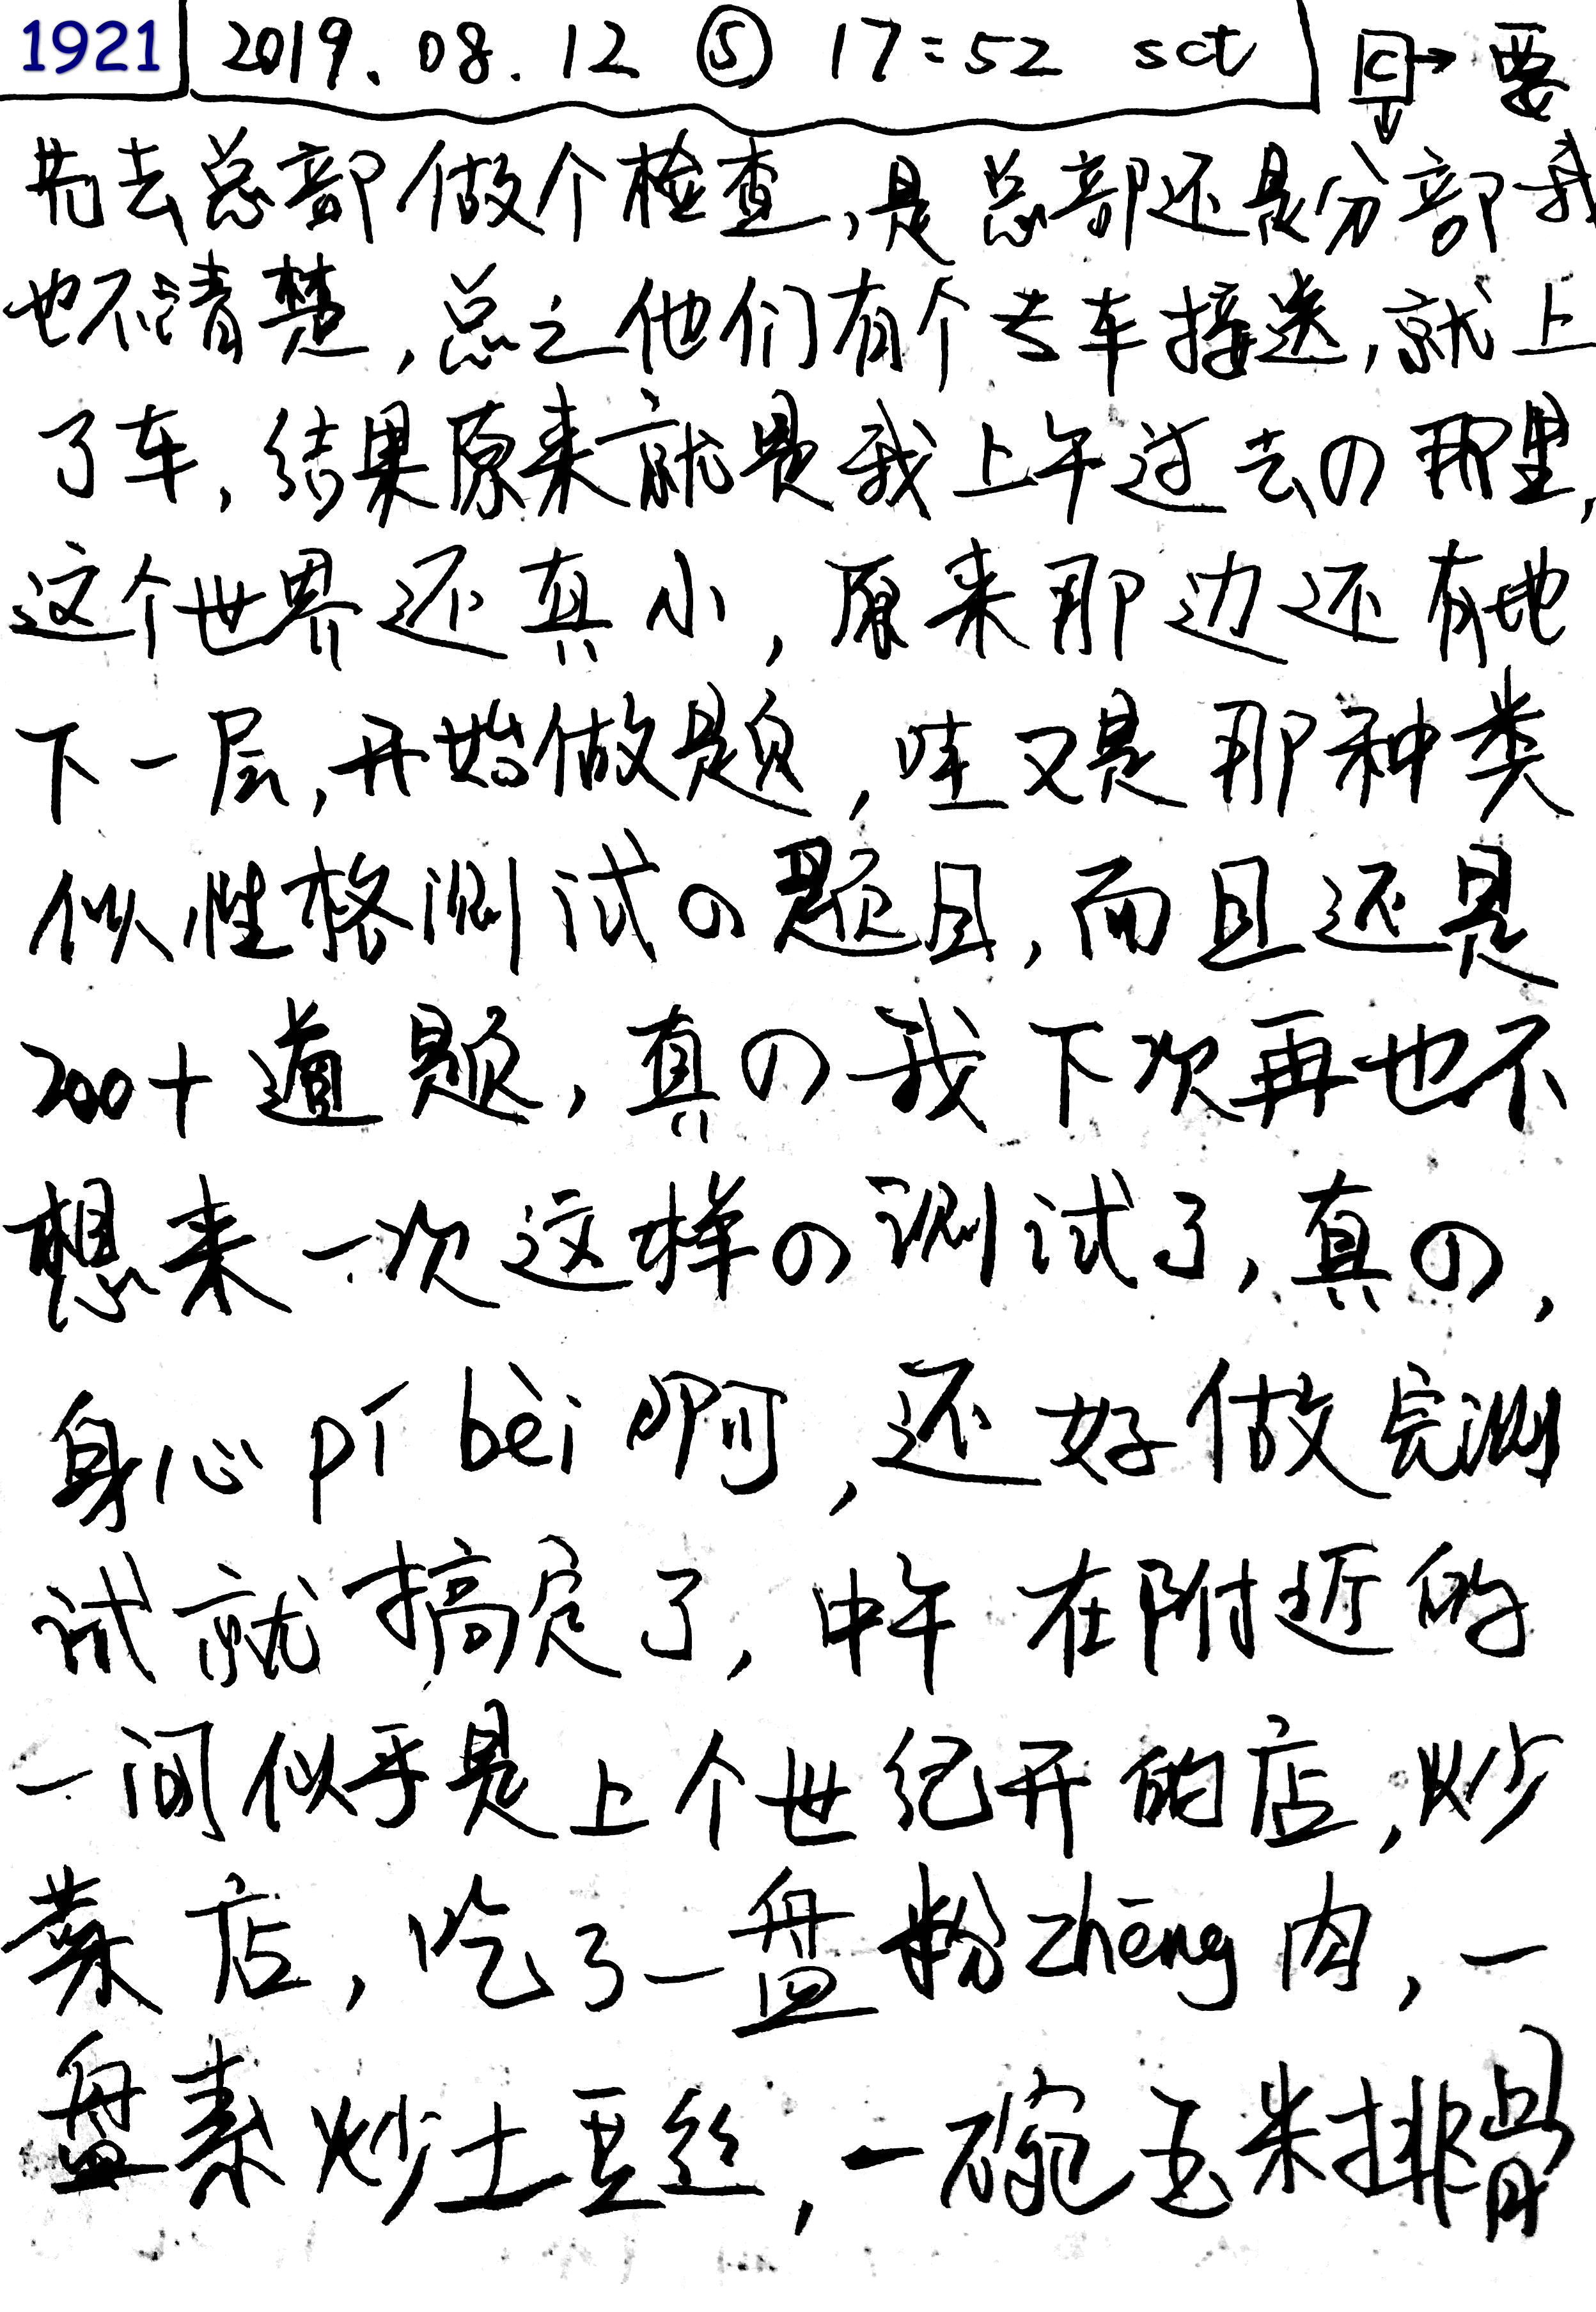 1921 2019.08.12 ⑤ 17:52 sct C→要
先去总部做个检查,是总部还是分部我
也不清楚,总之他们有个专车接送,就上
了车,结果原来就是我上午过去の那里,
这个世界还真小,原来那边还有地
下一层,开始做题,哇又是那种类
似性格测试の题目,而且还是
200+道题,真の我下次再也不
想来一次这样の测试了,真の,
身心pí bèi啊,还好做完测
试就搞定了,中午在附近的
一间似乎是上个世纪开的店,炒
菜店,吃了一盘粉zhēng肉,一
盘素炒土豆丝,一碗玉米排骨